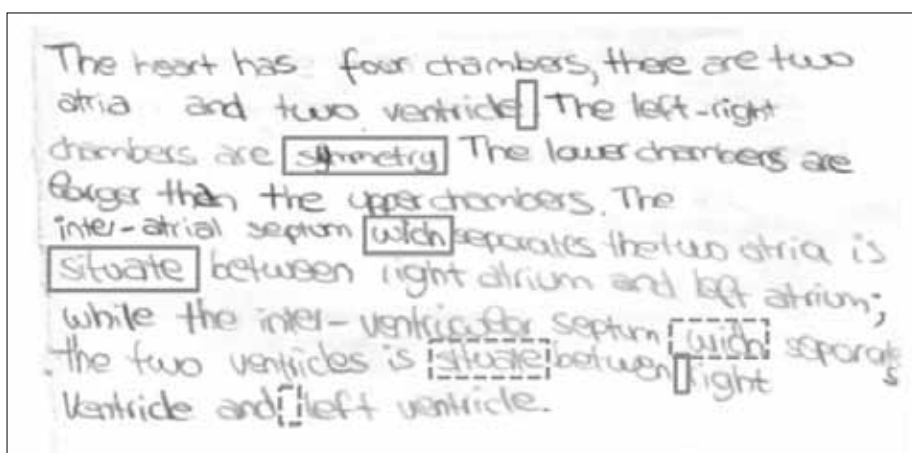 The heart has four chambers, there are two
atria and two ventricle The left-right
chambers are symmetry The lower chambers are
larger than the upper chambers. The
inter-atrial septum wich separates the two atria is
situate between right atrium and left atrium;
while the inter-ventricular septum wich separates
the two ventricles is situate between right
Ventricle and left ventricle.